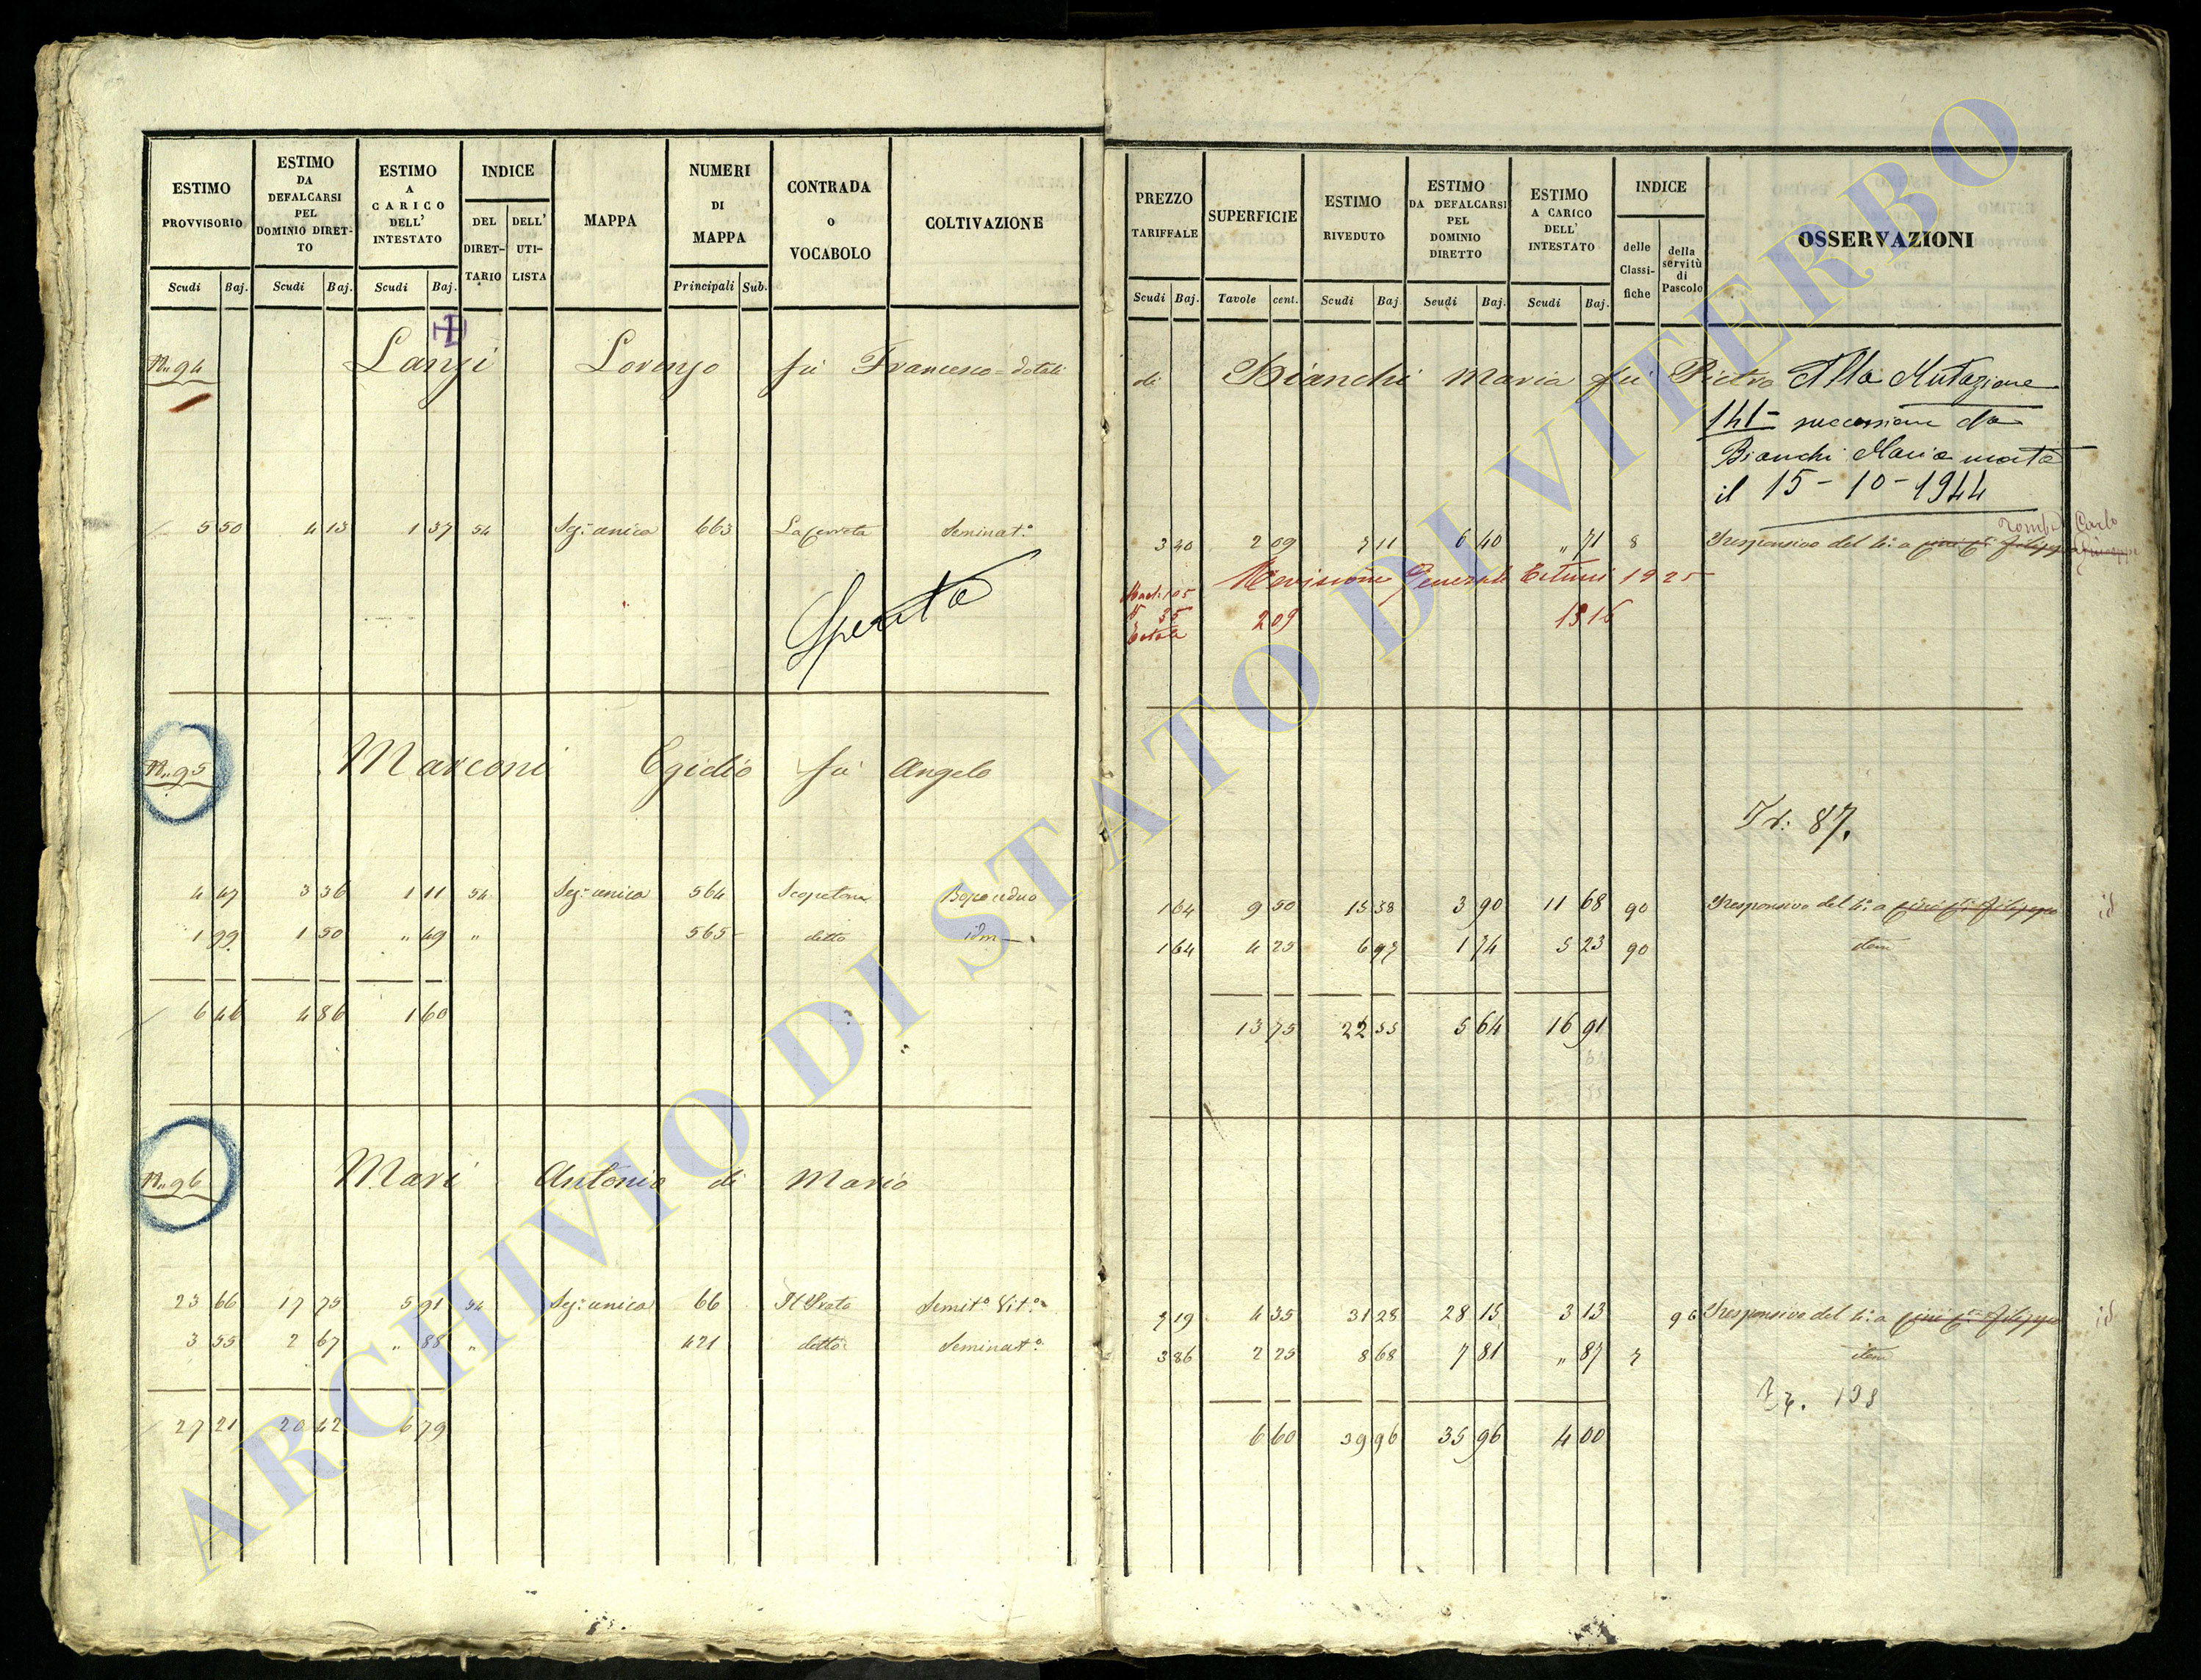 ESTIMO PROVVISORIO
ESTIMO DA DEFALCARSI PEL DOMINIO DIRET-TO
ESTIMO A CARICO DELL' INTESTATO
INDICE
DEL DIRET-TARIO
DELL' UTI-LISTA
MAPPA
NUMERI DI MAPPA
CONTRADA o VOCABOLO
COLTIVAZIONE
Scudi Baj. Scudi Baj. Scudi Baj. Principali Sub.
N.. 94 Lanzi Lorenzo fu Francesco = dotali
5 50 4 13 1 37 54 Sez: unica 663 Seminat.o
Spenta
N.. 95 Marconi Egidio fu Angelo
4 47 3 36 1 11 54 Sez: unica 564 Bosco ceduo
1 99 1 50 " 49 " 565 detto idm
6 46 4 86 1 60
N.. 96 Mari Antonio di Mario
23 66 17 75 5 91 54 Sez: unica 66 Il Prato Semit.o Vit.o
3 55 2 67 " 88 " 421 detto Seminat.o
27 21 20 42 6 79
PREZZO TARIFFALE
SUPERFICIE
ESTIMO RIVEDUTO
ESTIMO DA DEFALCARSI PEL DOMINIO DIRETTO
ESTIMO A CARICO DELL' INTESTATO
INDICE
delle Classi-fiche
della servitù di Pascolo
OSSERVAZIONI
Scudi Baj. Tavole cent. Scudi Baj. Scudi Baj. Scudi Baj.
di Bianchi Maria fu Pietro Alla Mutazione
141 - successione da
Bianchi Maria morta
il 15 - 10 - 1944
Carlo
3 40 2 09 7 11 6 40 " 71 8 Responsivo del 4.o a
Giuseppe
Revisione Generale Estimi 1925
209 1316
Totale
Tr: 87.
1 64 9 50 15 58 3 90 11 68 90 Responsivo del 4.o a id
1 64 4 25 6 97 1 74 5 23 90 idem
13 75 22 55 5 64 16 91
7 19 4 35 31 28 28 15 3 13 96 Responsivo del 4.o a id
3 86 2 25 8 68 7 81 " 87 7 idem
138
6 60 39 96 35 96 4 00
ARCHIVIO DI STATO DI VITERBO